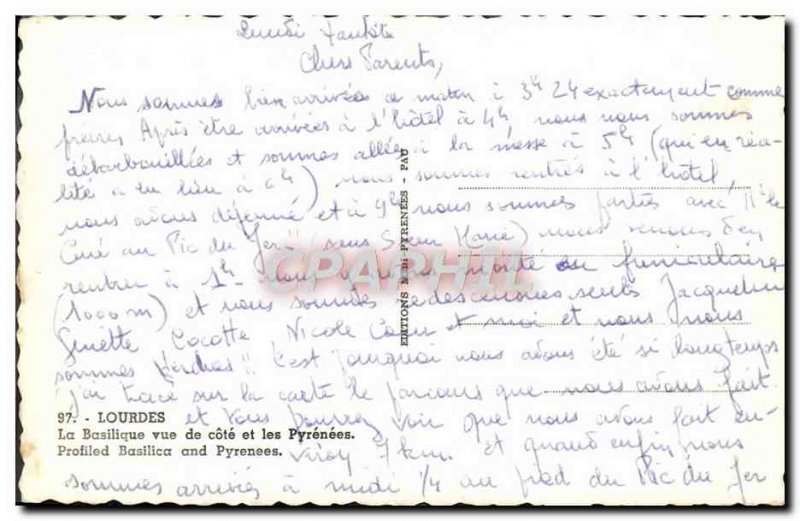 Lundi Pentecôte
Chers Parents,
Nous sommes bien arrivées ce matin à 3h 24 exactement comme
prévu, Après être arrivées à l'hôtel à 4h nous nous sommes
débarbouillées et sommes allées à la messe à 5h (qui en réa-
lité a eu lieu à 6h) nous sommes rentrés à l'hôtel,
nous avons déjeuné et à 9h nous sommes partis avec Mr le
Curé au Pic du Jer!! (sans Sœur Marie) nous venons d'en
rentrer à 1h - nous avons monté en funiculaire
(1000m) et nous sommes redescendues seuls Jacqueline
Ginette Cocotte Nicole et moi et nous nous
sommes perdues!! C'est pourquoi nous avons été si longtemps
j'ai tracé sur la carte le parcours que nous avons fait
et vous pourrez voir que nous avons fait en-
viron 7 km. et quand enfin nous
sommes arrivés à midi 1/4 au pied du Pic du Jer
97. - LOURDES
La Basilique vue de côté et les Pyrénées.
Profiled Basilica and Pyrenees.
EDITIONS MIDI-PYRÉNÉES - PAU
CPAPHIL